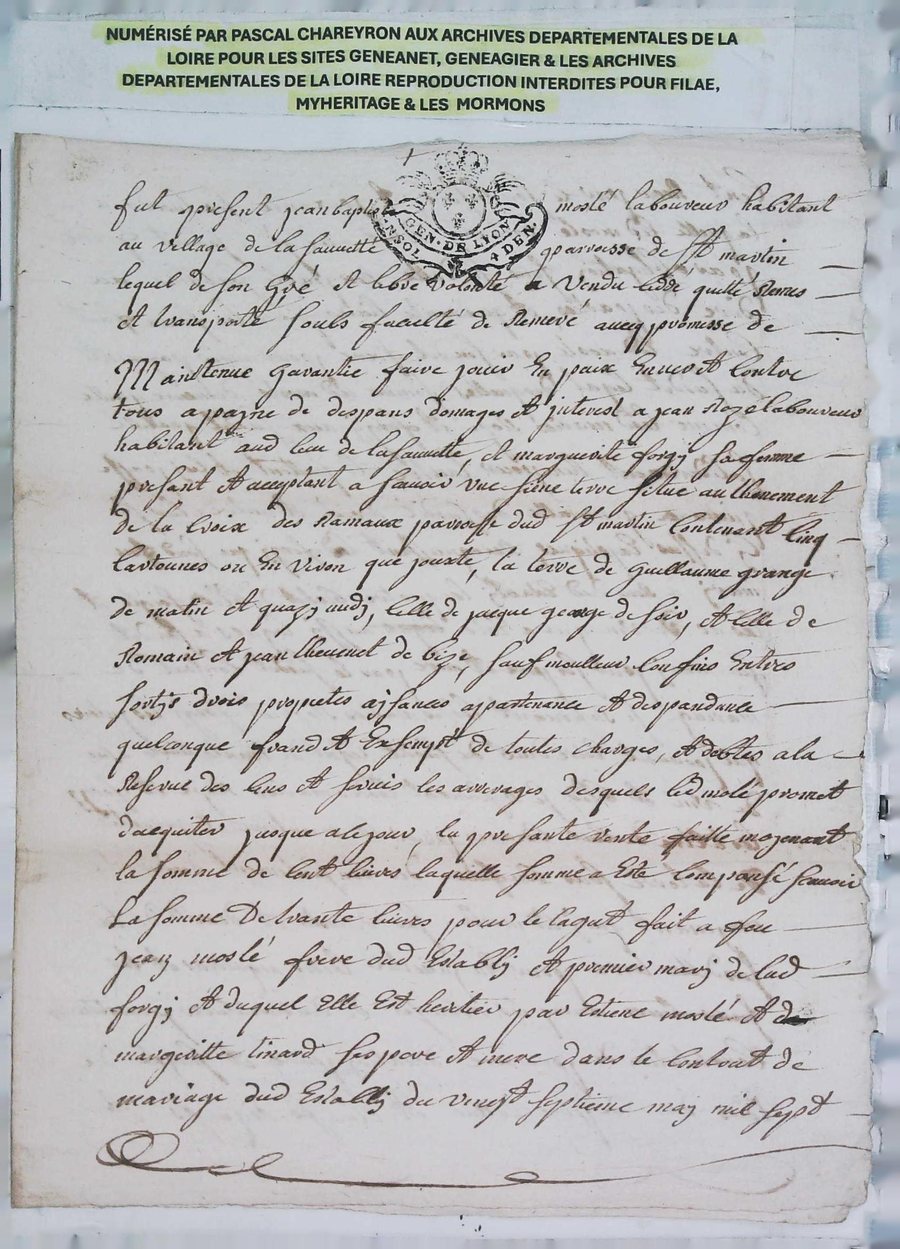 NUMÉRISÉ PAR PASCAL CHAREYRON AUX ARCHIVES DEPARTEMENTALES DE LA
LOIRE POUR LES SITES GENEANET, GENEAGIER & LES ARCHIVES
DEPARTEMENTALES DE LA LOIRE REPRODUCTION INTERDITES POUR FILAE,
MYHERITAGE & LES MORMONS
GEN. DE LYON
SOL 4 DEN.
fut present jean baptiste moslé laboureur habitant
au village de la sauuetté parroisse de st martin
lequel de son gré et libre volonté a vendu ceddé quitté remis
et transporté soubs faculté de remeré aueq promesse de
Maintenue garantie faire jouir en paix enuers et contre
tous a payne de despans domages et interest a jean rozé laboureur
habitant aud lieu de la sauuette, et marguerite forgy sa femme
presant et aceptant a sauoir vne siene terre situe au thenement
de la croix des Ramaux parroisse dud st martin contenant cinq
cartounes ou en viron que jouxte, la terre de guillaume grange
de matin et quazy midy, celle de jacque george de soir, et celle de
Romain et jean theuenet de bize, sauf meulleur confins entres
sortys drois propietes aysances apartenance et despandance
quelconque frand et exsempt de toutes charges, et debtes a la
Reserue des cens et seruis les arrerages desquels led molé promet
daquiter jusque a ce jour, la presante vente faitte moyenant
la somme de cent liures laquelle somme a esté compansé scauoir
la somme de trante liures pour le laqut fait a feu
jean moslé frere dud establiy et premier mary de lad
forgy et duquel elle est heritier par estiene moslé et de
margeritte linard ses pere et mere dans le contrat de
mariage dud establiy du vingt septieme may mil sept